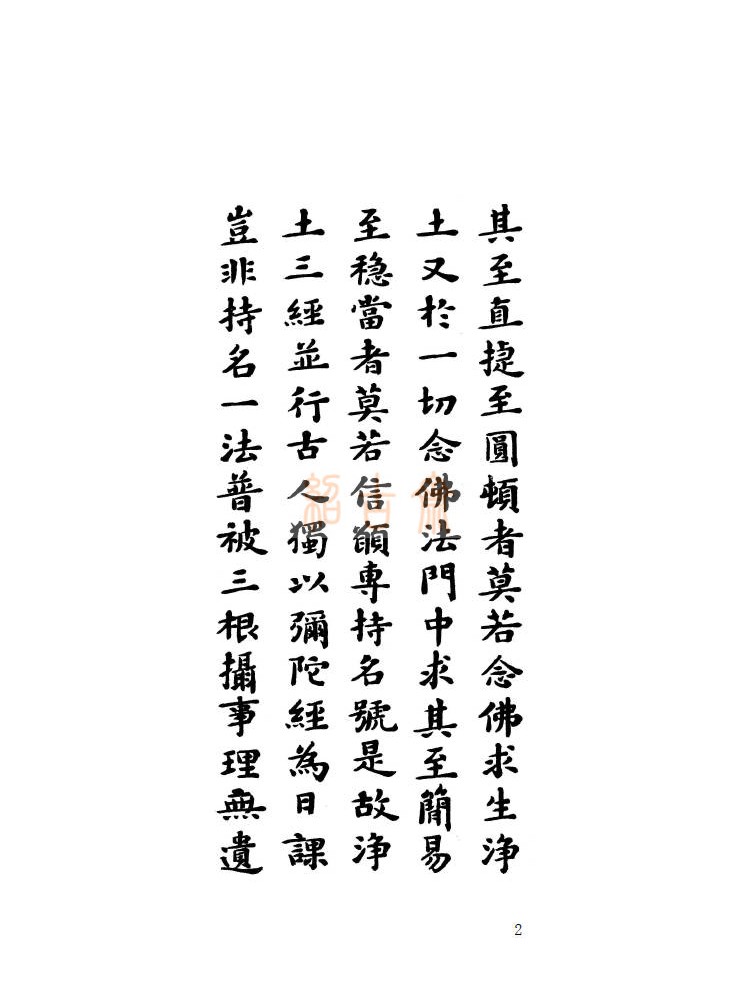 其至直捷至圓頓者莫若念佛求生淨
土又於一切念佛法門中求其至簡易
至稳當者莫若信願專持名號是故淨
土三經並行古人獨以彌陀經為日課
豈非持名一法普被三根攝事理無遺
2